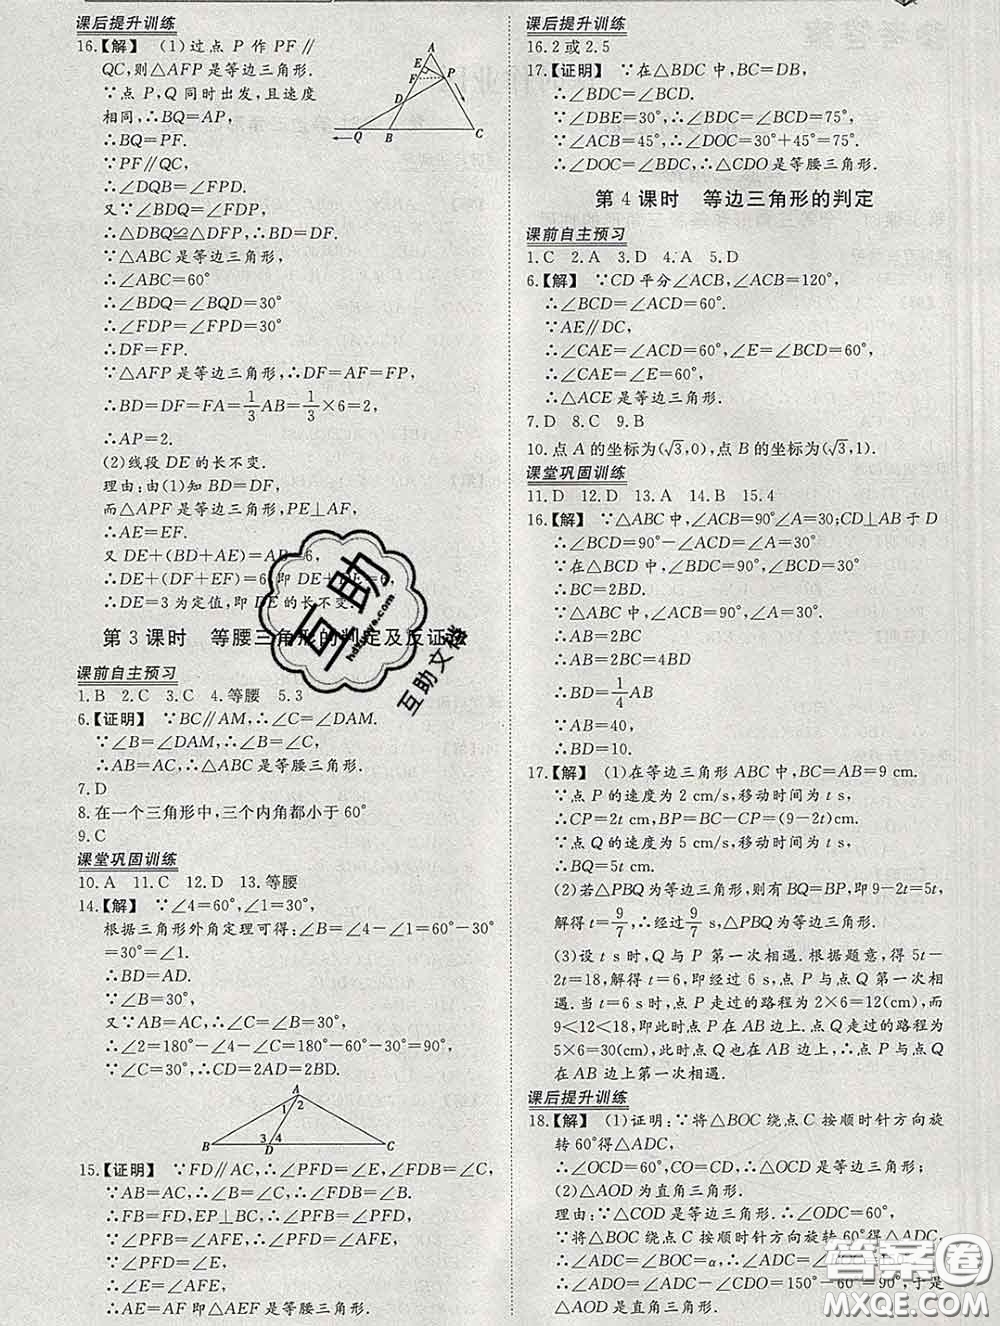 课后提升训练
16.【解】 (1)过点 P 作 PF∥
QC,则△AFP是等边三角形.
∵点 P,Q 同时出发,且速度
相同,∴BQ=AP,
∴BQ=PF.
∵PF∥QC,
∴∠DQB=∠FPD.
又∵∠BDQ=∠FDP,
∴△DBQ≌△DFP,∴BD=DF.
∵△ABC是等边三角形,
∴∠ABC=60°
∴∠BDQ=∠BQD=30°
∴∠FDP=∠FPD=30°
∴DF=FP.
∵△AFP是等边三角形,∴DF=FP=AF,
∴BD=DF=FA=1/3AB=1/3×6=2,
∴AP=2.
(2)线段 DE 的长不变.
理由:由(1)知 BD=DF,
而△APF是等边三角形,PE⊥AF,
∴AE=EF.
又 DE+(BD+AE)=AB=6,
∴DE+(DF+EF)=6,即 DE+DE=6,
∴DE=3为定值,即 DE 的长不变.
第 3 课时 等腰三角形的判定及反证
课前自主预习
1.B 2.C 3.C 4.等腰 5.3
6.【证明】 ∵BC∥AM,∴∠C=∠DAM.
∵∠B=∠DAM,∴∠B=∠C,
∴AB=AC,∴△ABC是等腰三角形.
7.D
8.在一个三角形中,三个内角都小于60°
9.C
课堂巩固训练
10.A 11.C 12.D 13.等腰
14.【解】 ∵∠4=60°,∠1=30°,
根据三角形外角定理可得:∠B=∠4-∠1=60°-30°
=30°=∠1.
∴BD=AD.
∵∠B=30°,
又∵AB=AC,∴∠C=∠B=30°,
∴∠2=180°-∠4-∠C=180°-60°-30°=90°,
∵∠C=30°,∴CD=2AD=2BD.
15.【证明】 ∵FD∥AC,∴∠PFD=∠E,∠FDB=∠C,
∵AB=AC,∴∠B=∠C,∴∠FDB=∠B.
∴FB=FD,EP⊥BC,∴∠PFB=∠PFD,
∵∠PFB=∠AFE,∴∠PFD=∠AFE,
∴∠E=∠AFE,
∴AE=AF即△AFE是等腰三角形.
A
E
F
P
D
Q
B
C
A
1
2
3
4
B
D
C
课后提升训练
16.2或2.5
17.【证明】 ∵在△BDC中,BC=DB,
∴∠BDC=∠BCD.
∵∠DBE=30°,∴∠BDC=∠BCD=75°,
∵∠ACB=45°,∴∠DOC=30°+45°=75°.
∴∠DOC=∠BDC,∴△CDO是等腰三角形.
第 4 课时 等边三角形的判定
课前自主预习
1.C 2.A 3.D 4.A 5.D
6.【解】 ∵CD平分∠ACB,∠ACB=120°,
∴∠BCD=∠ACD=60°.
∵AE∥DC,
∴∠CAE=∠ACD=60°,∠E=∠BCD=60°,
∴∠CAE=∠E=60°,
∴△ACE是等边三角形.
7.D 8.C 9.B
10.点 A 的坐标为(√3,0),点 B 的坐标为(√3,1).
课堂巩固训练
11.D 12.D 13.A 14.B 15.4
16.【解】 ∵△ABC中,∠ACB=90°∠A=30;CD⊥AB于D
∴∠BCD=90°-∠ACD=30°
∵在△BCD中,∠BDC=90°,∠BCD=30°
∴BC=2BD.
∵△ABC中,∠ACB=90°,∠A=30°
∴AB=2BC
∴AB=2BC=4BD
∴BD=1/4AB
∵AB=40,
∴BD=10.
17.【解】 (1)在等边三角形ABC中,BC=AB=9 cm.
∵点 P 的速度为 2 cm/s,移动时间为 t s,
∴CP=2t cm,BP=BC-CP=(9-2t)cm.
∵点 Q 的速度为 5 cm/s,移动时间为 t s,
∴BQ=5t cm.
(2)若△PBQ为等边三角形,则有BQ=BP,即9-2t=5t,
解得t=9/7,∴经过9/7 s,△PBQ为等边三角形.
(3)设 t s时,Q 与 P 第一次相遇.根据题意,得 5t
-2t=18,解得 t=6,即经过 6 s,点 P 与点 Q 第一次相
遇.当 t=6 s时,点 P 走过的路程为 2×6=12(cm),而
9<12<18,即此时点 P 在 AB 边上.点 Q 走过的路程为
5×6=30(cm),此时点 Q 也在 AB 边上,∴点 P 与点 Q
在 AB 边上第一次相遇.
课后提升训练
18.【解】 (1)证明:∵将△BOC绕点 C 按顺时针方向旋
转60°得△ADC,
∴∠OCD=60°,CO=CD,∴△OCD是等边三角形;
(2)△AOD为直角三角形.
理由:∵△COD是等边三角形.∴∠ODC=60°,
∵将△BOC绕点 C 按顺时针方向旋转60°得△ADC,
∴∠ADC=∠BOC=α,∴∠ADC=∠BOC=150°,
∴∠ADO=∠ADC-∠CDO=150°-60°=90°,于是
△AOD是直角三角形.
互助
hdzuoye.com
互助文档
答案圈
MXQE.COM